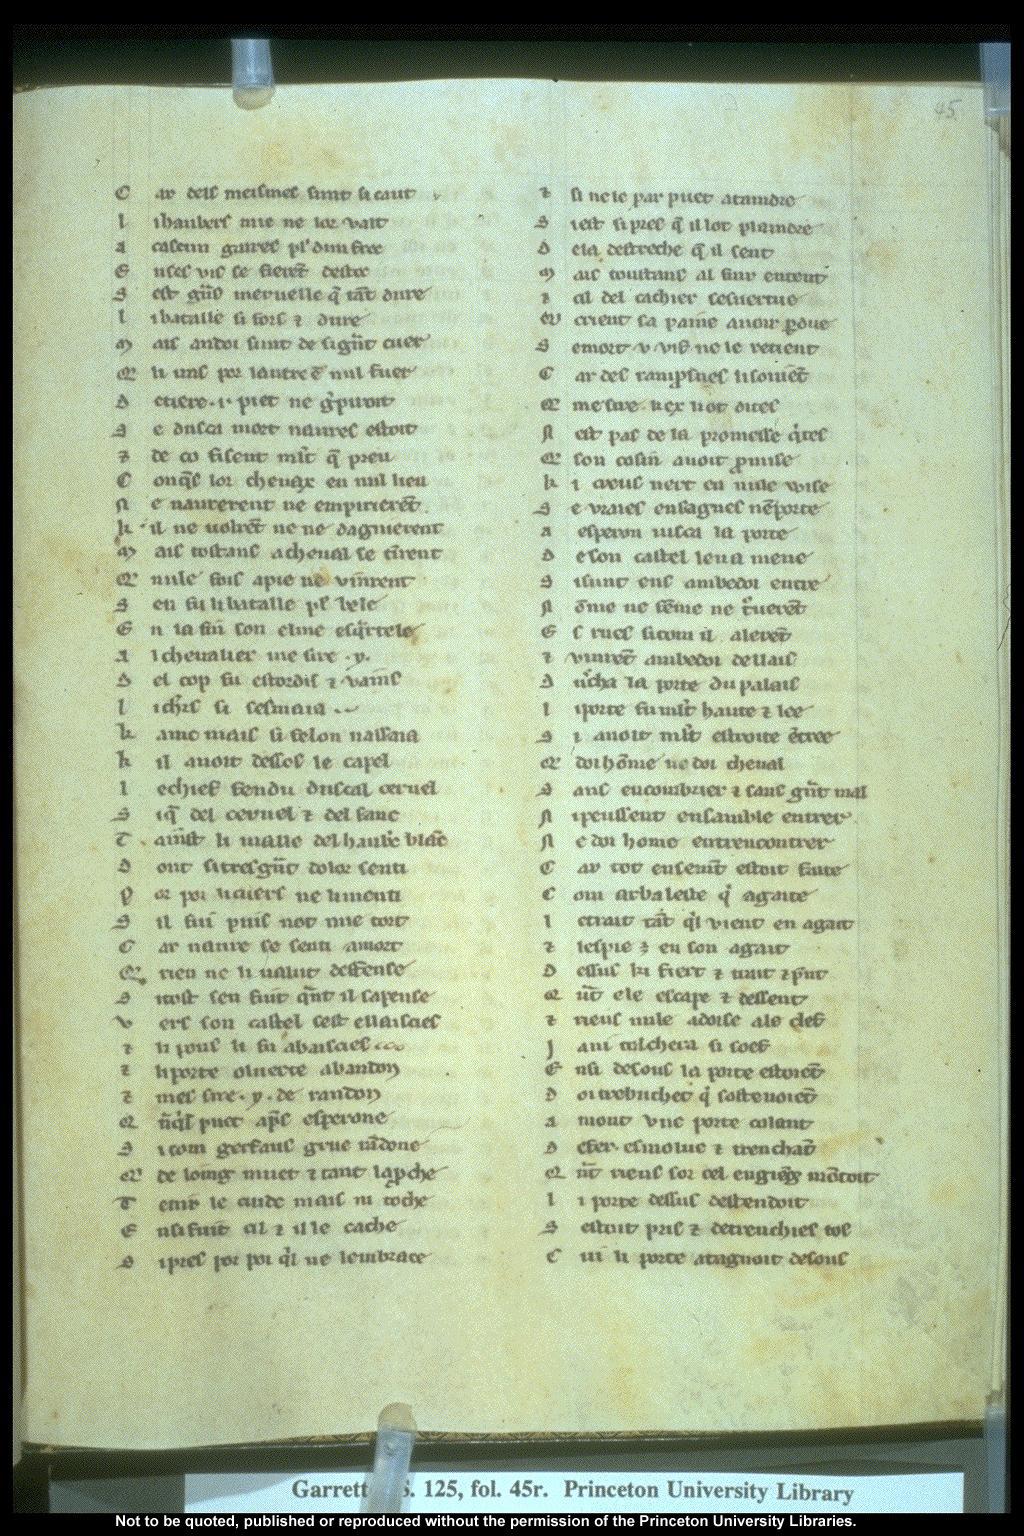 45.
C ar dels meismes sunt si caut
L ihauberſ mie ne lor vaut
A caſcun guires pl᷒ dun froc
E nſeſ vis ſe fierēt deſtoc
S eſt gn̄s merueille q̄ tāt dure
L ibatalle ſi forſ ⁊ dure
M ais andoi ſunt de ſigrn̄t cuer
Q̅ li unſ por lautre ē nul fuer
D etiere .i. piet ne gͥpiroit
S e dusca mort naures eſtoit
⁊ de co fiſent ml̄t q̄ preu
C onq̄s lor cheuax en nul lieu
N e naurerent ne empirierēt
K il ne uolrēt ne ne dagnierent
M ais toſtans acheual ſe tīrent
Q̅ nule fois apie ne vīnrent
S en fu libatalle pl᷒ bele
E n la fin ſon elme eſq̄rtele
A l cheualier me ſire .y.
D el cop fu eſtordis ⁊ vains
L ichrs ſi ſeſmaia
K ainc mais ſi felon naſſaia
K il auoit deſſos le capel
L echief fendu duſcal ceruel
S iq̄ del ceruel ⁊ del sanc
T aint li malle delhauberc blāc
D ont ſitresgn̄t dolor ſenti
P or poi licuers ne limenti
S il fui puis not mie tort
C ar naure ſe ſenti amort
Q̅ rien ne li ualut deffenſe
S itoſt ſen fuit qn̄t il ſapenſe
V ers ſon caſtel ſeſt ellaiſcies
⁊ li pons li fu abaiſcies
⁊ liporte ouuerte abandon
⁊ meſ ſire .y. de randon
Q̅ n̄q̄s puet ap̄s eſperone
S icom gerfaus grue rādone
Q̅ de loing muet ⁊ tant lap̄che
T enir le cuide mais ni toche
E nſi fuit cil ⁊ il le cache
S ipres por poi q̄l ne lembrace
⁊ ſi nele par puet ataindre
S ieſt ſi pres q̄ il lot plaindre
D ela deſtreche q̄ il ſent
M ais toutans al fuir entent
⁊ cil del cachier ſeſuertue
Q̅ crient ſa paine auoir ꝑdue
S emort v vif ne le retient
C ar des ramposnes liſouiēt
Q̅ meſire kex liot dites
N eſt pas de la promeſſe qͥtes
Q̅ ſon coſin auoit ꝓmiſe
K i creus nert en nule wiſe
S e vraies enſagnes nēporte
A eſperon iuſca la porte
D eſon caſtel lena mene
S iſunt ens ambedoi entre
N ōme ne fēme ne tͥuerēt
E s rues ſicom il alerēt
⁊ vinrēt ambedoi deſlais
D uſcha la porte du palais
L iporte fu ml̄t haute ⁊ lee
S i auoit ml̄t eſtroite ētree
Q̅ doi hōme ne doi cheual
S ans encombrier ⁊ ſans gn̄t mal
N ipeuſſent enſamble entrer
N e doi home entrencontrer
C ar tot enſemēt eſtoit faite
C om arbaleſte q̄ agaite
L etrait tāt q̄l vient en agait
⁊ leſpie ꝫ en ſon agait
D eſſus lui fiert ⁊ trait ⁊ pn̄t
Q̅ n̄t ele eſcape ⁊ deſſent
⁊ riens nule adoiſe ale clef
J ani tolchera ſi ſoef
E nſi deſous la porte eſtoiēt
D oi trebuchet q̄ ſoſtenoiēt
A mont vne porte colant
D efer eſmolue ⁊ trenchāt
Q̅ n̄t riens ſor cel engieg mōtoit
L i porte deſſus deſtendoit
S eſtoit pris ⁊ detrenchies tos
C ui li porte ataignoit deſous
Garrett S. 125, fol. 45r. Princeton University Library
Not to be quoted, published or reproduced without the permission of the Princeton University Libraries.